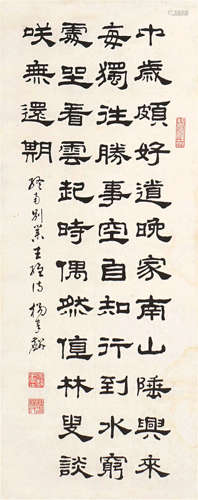 中歲頗好道晚家南山陲興來
每獨往勝事空自知行到水窮
處坐看雲起時偶然值林叟談
咲無還期
終南別業王維詩 楊